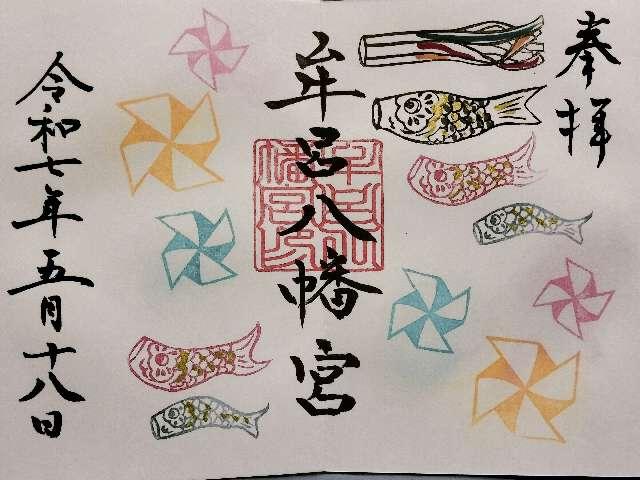 奉拝
牟呂八幡宮
令和七年五月十八日